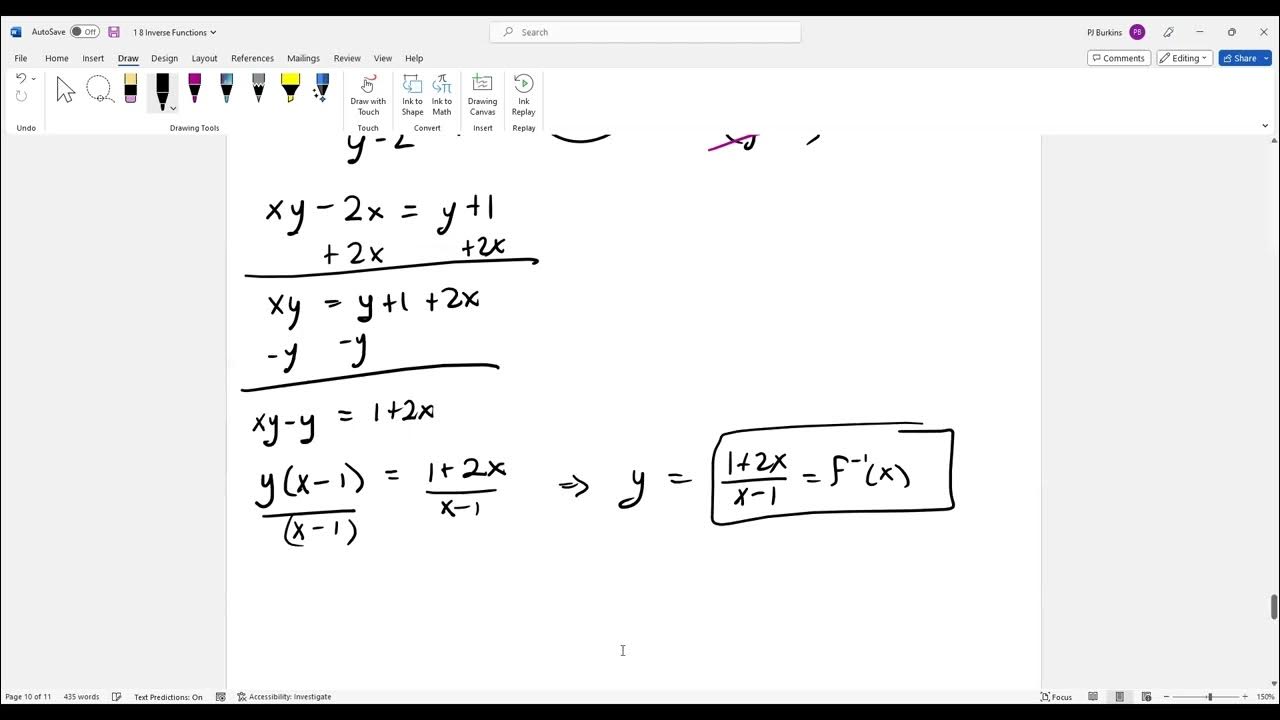 AutoSave Off 1 8 Inverse Functions Search PJ Burkins PB
File Home Insert Draw Design Layout References Mailings Review View Help Comments Editing Share
Draw with Touch Ink to Shape Ink to Math Drawing Canvas Ink Replay
Undo Drawing Tools Touch Convert Insert Replay
y-2
xy - 2x = y+1
+ 2x +2x
xy = y+1 +2x
-y -y
xy-y = 1+2x
y(x-1) = 1+2x ⇒ y = 1+2x = f⁻¹(x)
(x-1) x-1 x-1
Page 10 of 11 435 words Text Predictions: On Accessibility: Investigate Focus 150%